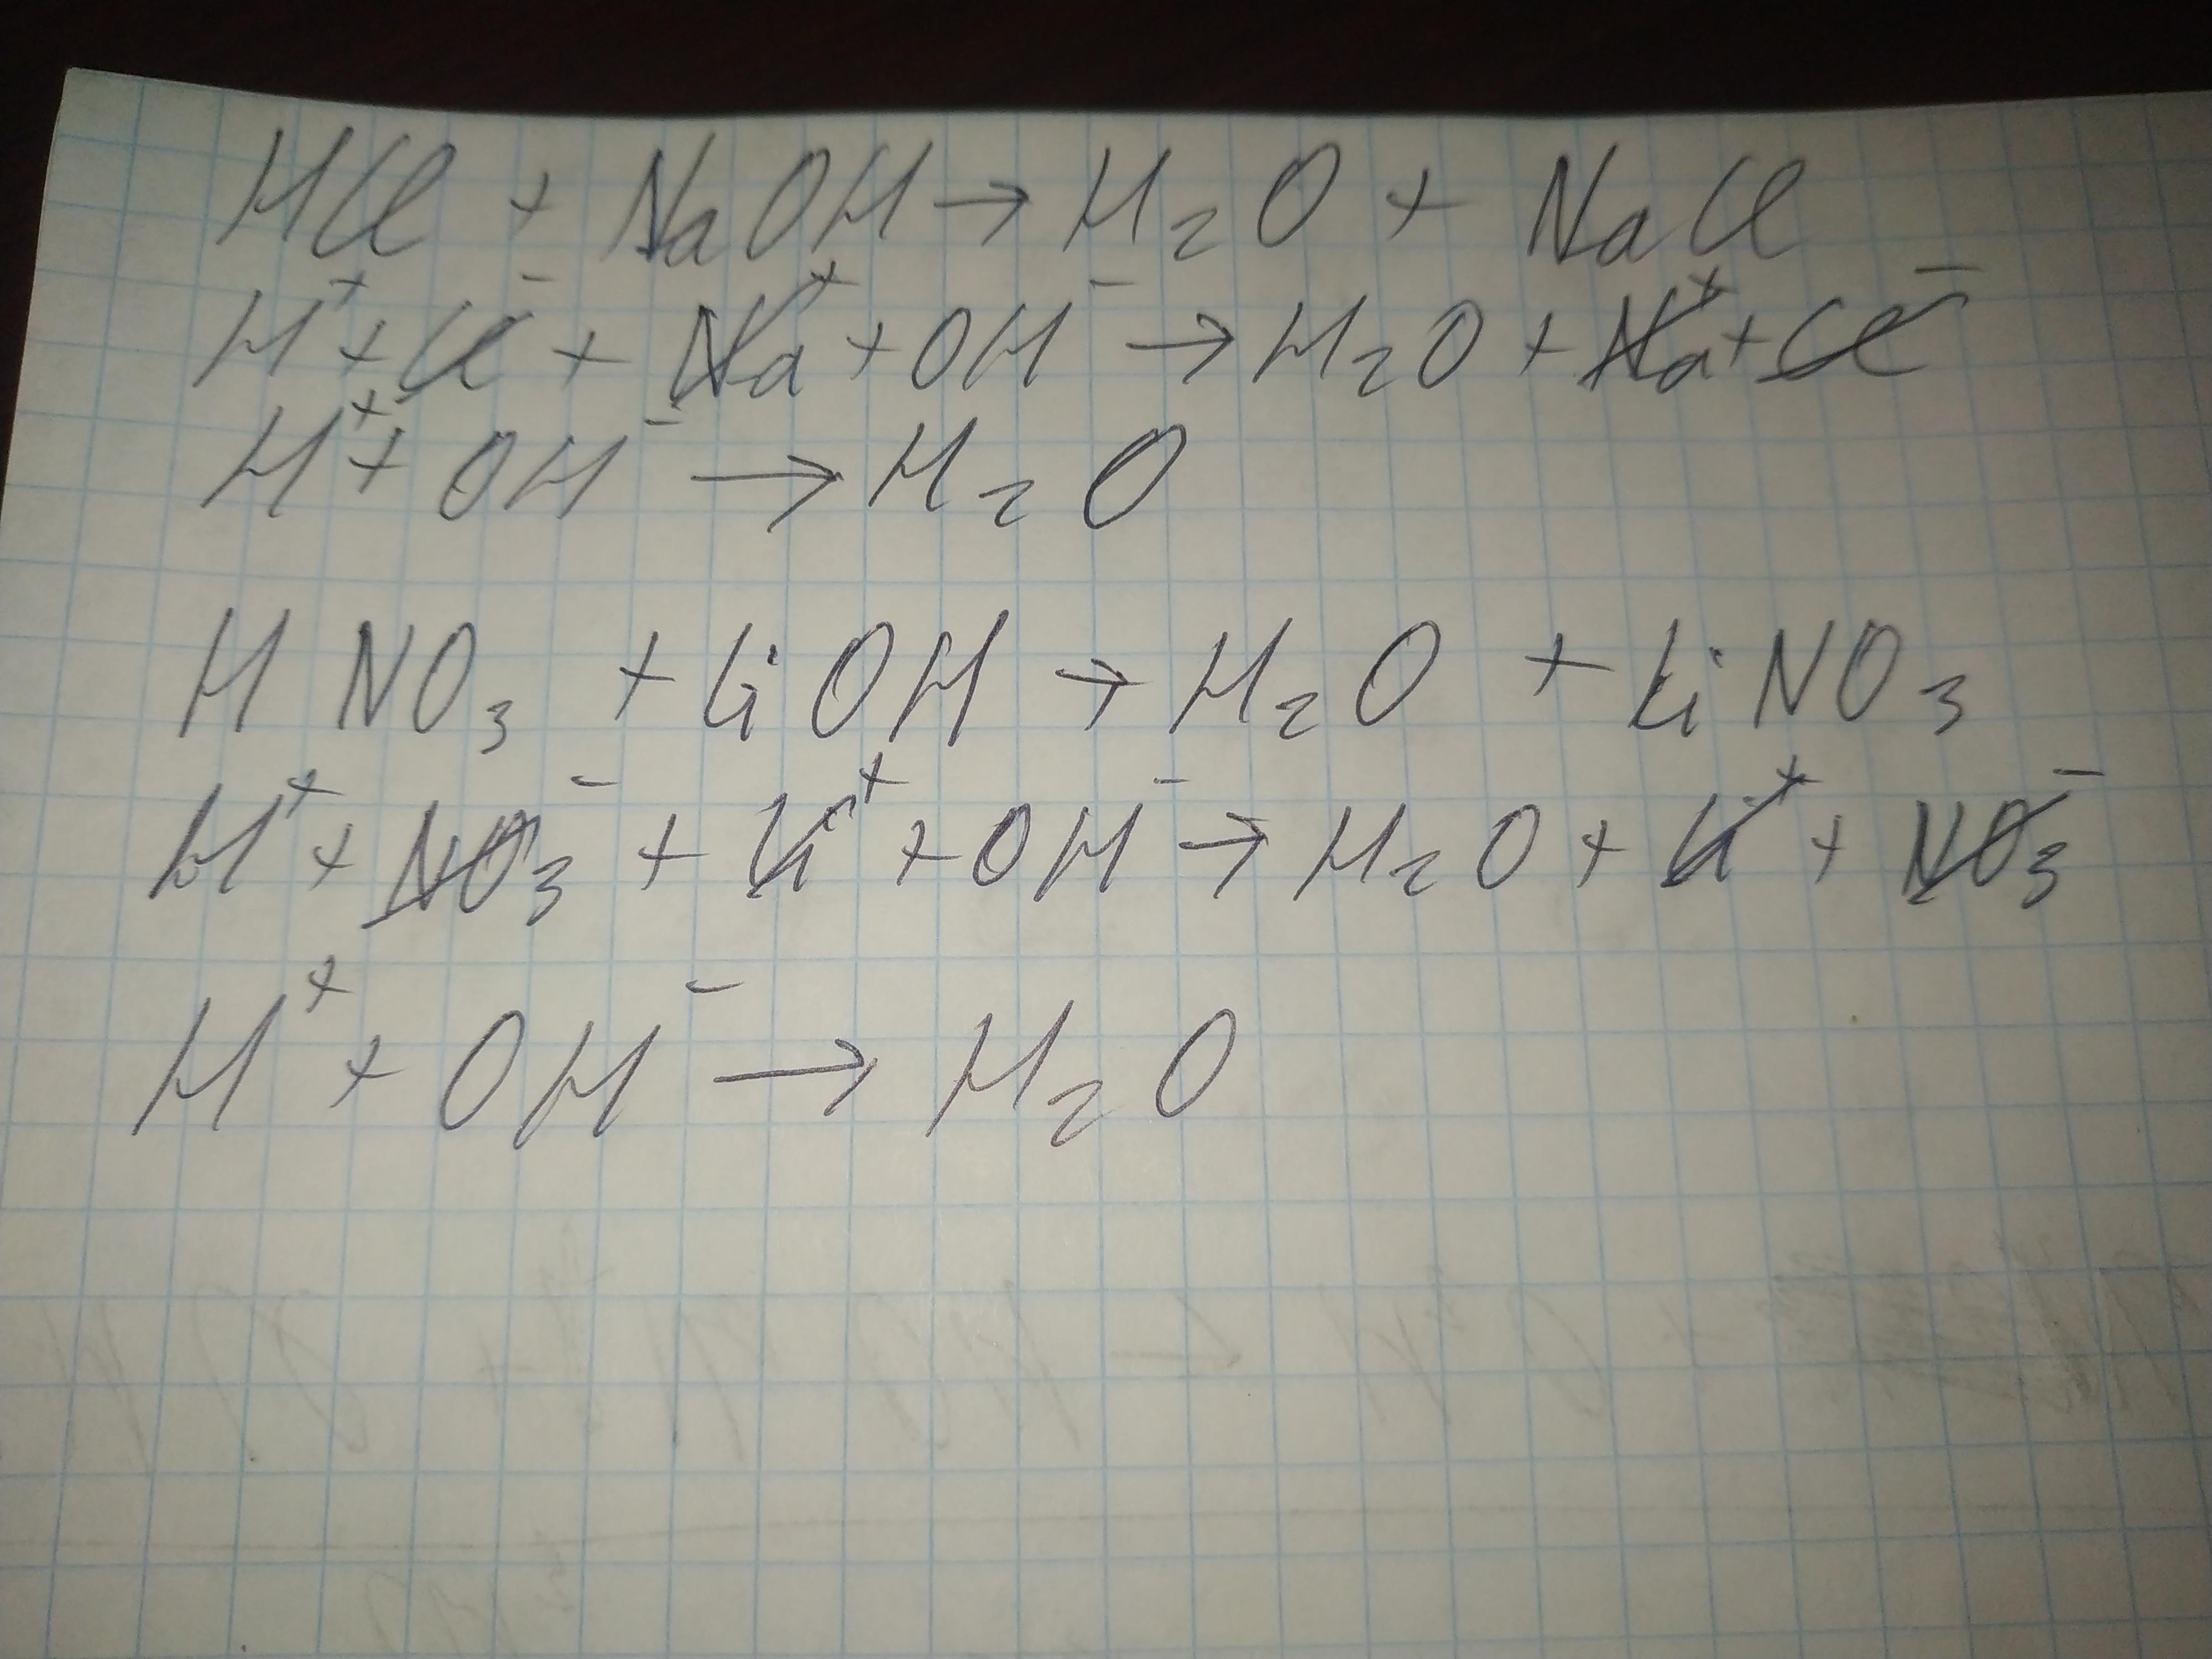 HCl + NaOH → H₂O + NaCl
H⁺ + Cl⁻ + Na⁺ + OH⁻ → H₂O + Na⁺ + Cl⁻
H⁺ + OH⁻ → H₂O
HNO₃ + LiOH → H₂O + LiNO₃
H⁺ + NO₃⁻ + Li⁺ + OH⁻ → H₂O + Li⁺ + NO₃⁻
H⁺ + OH⁻ → H₂O